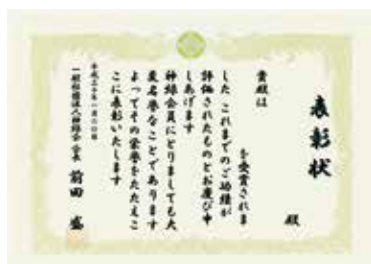 表彰状
殿
貴殿は
を受賞されま
した これまでのご功績が
評価されたものとお慶び申
しあげます
神緑会員にとりましても大
変名誉なことであります
よってその栄誉をたたえこ
こに表彰いたします
平成三十年一月二十日
一般社団法人神緑会 会長 前田 盛